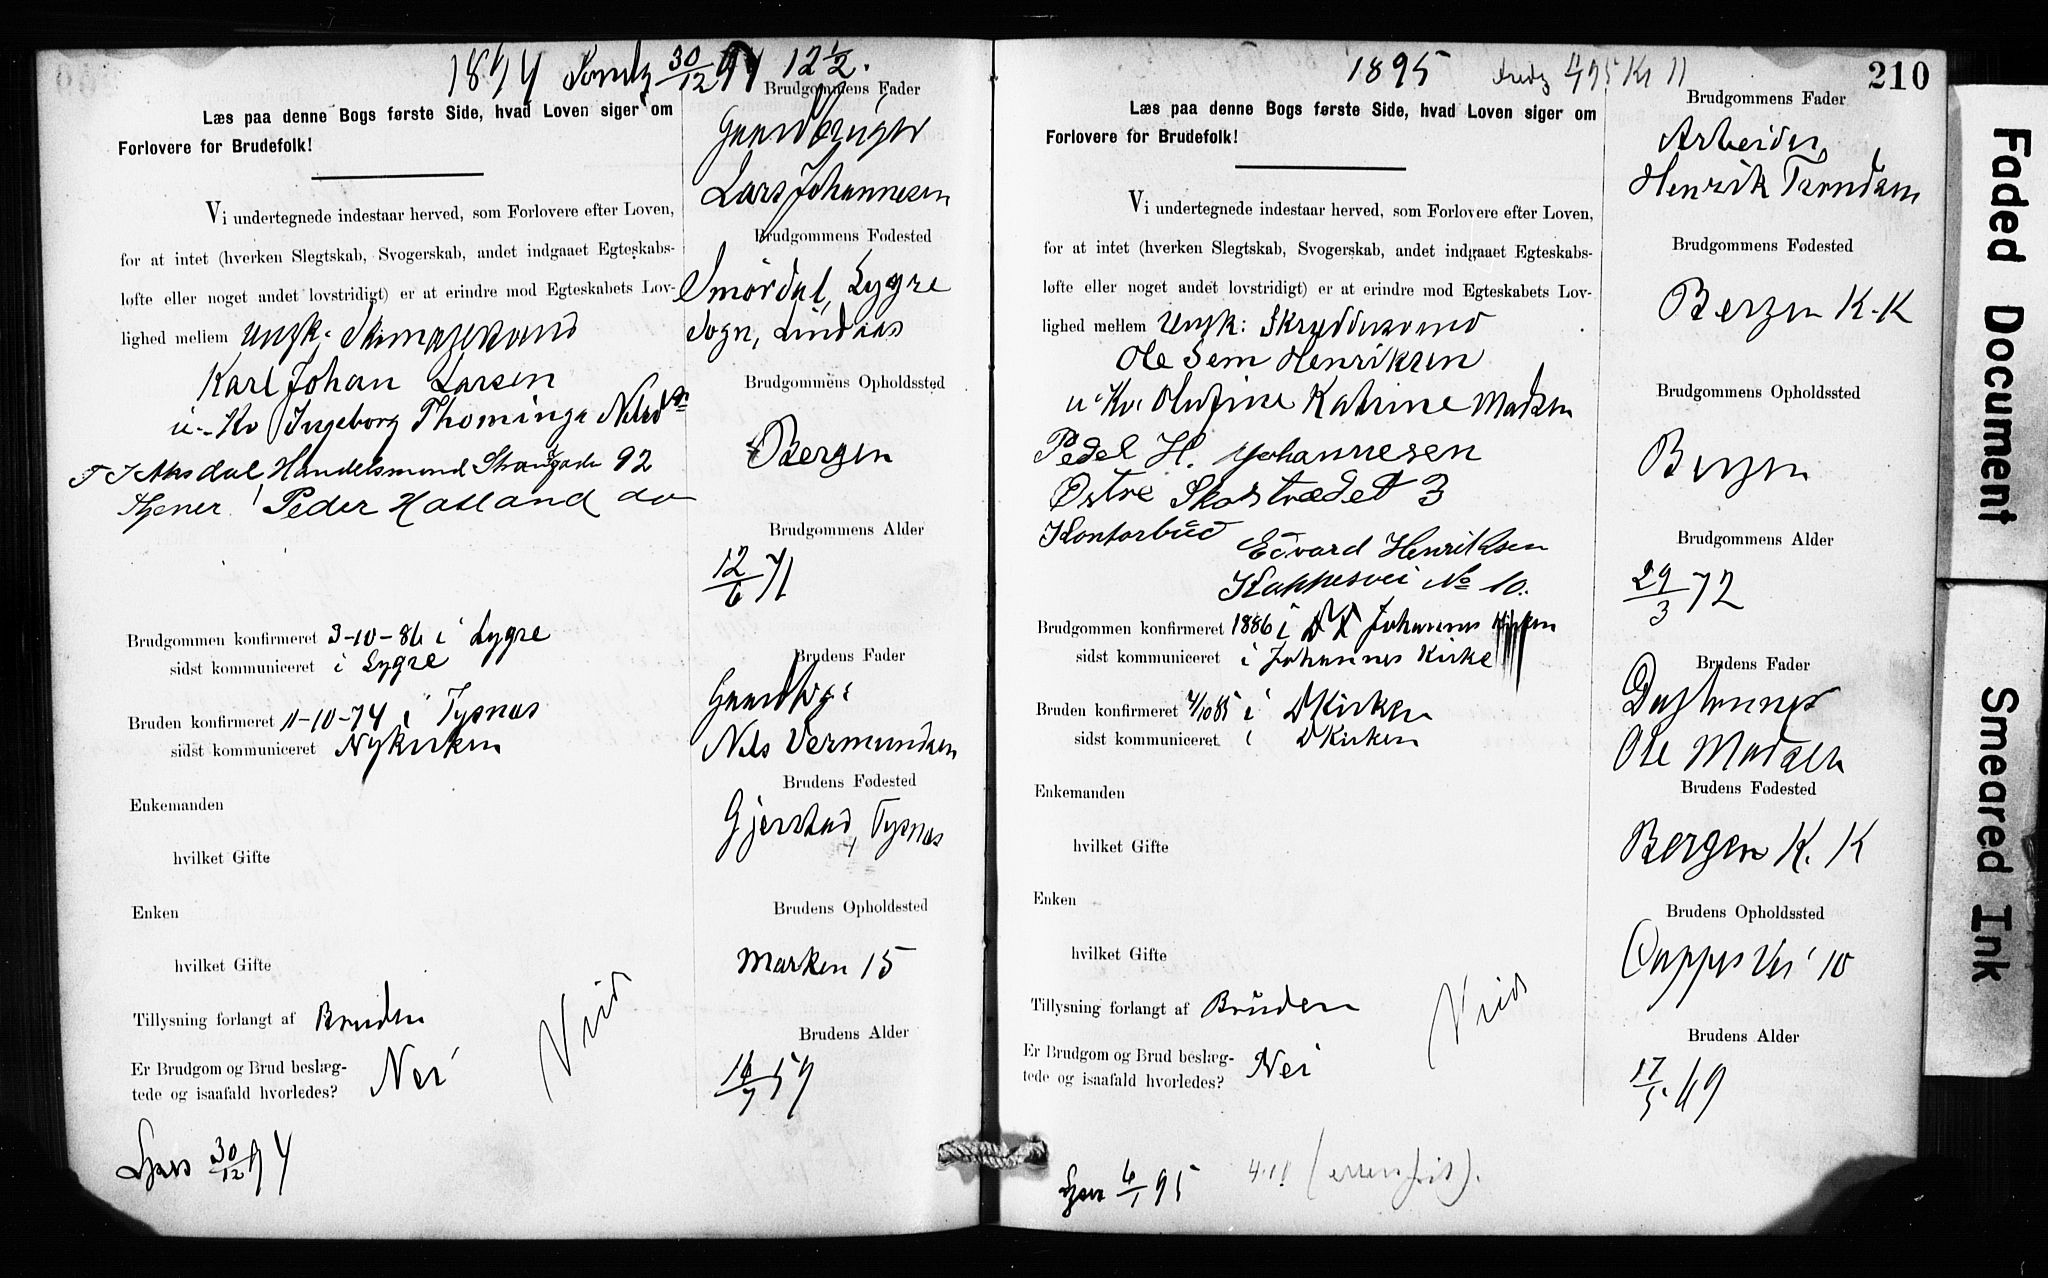 1894 30/12 94 12½.
Læs paa denne Bogs første Side, hvad Loven siger om
Forlovere for Brudefolk!
Vi undertegnede indestaar herved, som Forlovere efter Loven,
for at intet (hverken Slegtskab, Svogerskab, andet indgaaet Egteskabs-
løfte eller noget andet lovstridigt) er at erindre mod Egteskabets Lov-
lighed mellem Ungk:
Karl Johan Larsen
u. Kv Ingeborg Thominga
Handelsmand Strandgade 92
Peder Hatland do
Brudgommen konfirmeret 3-10-86 i Lygre
sidst kommuniceret i Lygre
Bruden konfirmeret 11-10-74 i Tysnæs
sidst kommuniceret Nykirken
Enkemanden
hvilket Gifte
Enken
hvilket Gifte
Tillysning forlangt af Bruden
Er Brudgom og Brud beslæg-
tede og isaafald hvorledes? Nei
Viid
30/12 94
Brudgommens Fader
Gaardbruger
Lars Johannesen
Brudgommens Fødested
Smørdal, Lygre
Sogn, Lindaas
Brudgommens Opholdssted
Bergen
Brudgommens Alder
12/6 71
Brudens Fader
Nels Vermundsen
Brudens Fødested
Gjerstad, Tysnæs
Brudens Opholdssted
Marken 15
Brudens Alder
59
1895 Kl 11
210
Læs paa denne Bogs første Side, hvad Loven siger om
Forlovere for Brudefolk!
Vi undertegnede indestaar herved, som Forlovere efter Loven,
for at intet (hverken Slegtskab, Svogerskab, andet indgaaet Egteskabs-
løfte eller noget andet lovstridigt) er at erindre mod Egteskabets Lov-
lighed mellem Ungk: Skræddersvend
Ole Sem Henriksen
u. Kv. Olufine Katrine Madsen
Pedel H. Johannesen
Østre Skostrædet 3
Kontorbud Edvard Henriksen
Kappesvei No 10.
Brudgommen konfirmeret 1886 i Johannes
sidst kommuniceret i Johannes Kirke
Bruden konfirmeret 4/10 85 i DKirken
sidst kommuniceret i DKirken
Enkemanden
hvilket Gifte
Enken
hvilket Gifte
Tillysning forlangt af Bruden
Er Brudgom og Brud beslæg-
tede og isaafald hvorledes? Nei
Viid
6/1 95
Brudgommens Fader
Arbeider
Henrik
Brudgommens Fødested
Bergen K.K
Brudgommens Opholdssted
Bergen
Brudgommens Alder
29/3 72
Brudens Fader
Ole Madsen
Brudens Fødested
Bergen K. K
Brudens Opholdssted
Cappes Vei 10
Brudens Alder
17/5 69
Faded Document
Smeared Ink